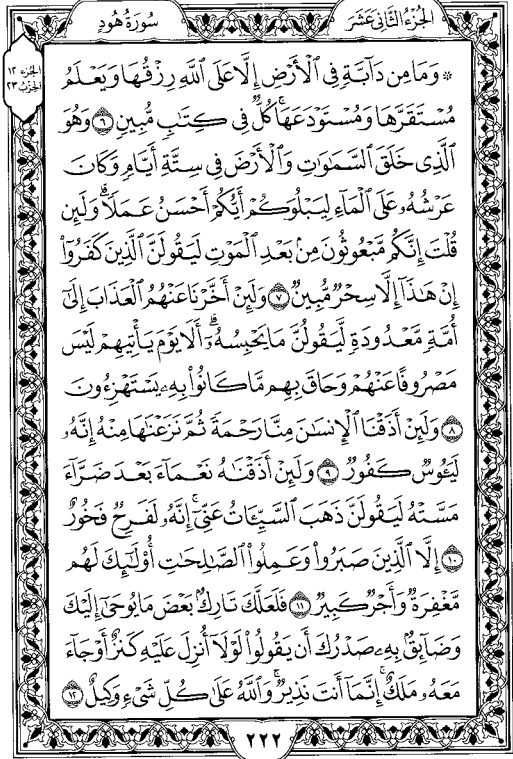 سُورَةُ هُودٍ
الجُزْءُ الثَّانِي عَشَرَ
الجزء ١٢
الحزب ٢٣
۞ وَمَا مِن دَآبَّةٍ فِي ٱلْأَرْضِ إِلَّا عَلَى ٱللَّهِ رِزْقُهَا وَيَعْلَمُ
مُسْتَقَرَّهَا وَمُسْتَوْدَعَهَا ۚ كُلٌّ فِي كِتَٰبٍ مُّبِينٍ ٦ وَهُوَ
ٱلَّذِي خَلَقَ ٱلسَّمَٰوَٰتِ وَٱلْأَرْضَ فِي سِتَّةِ أَيَّامٍ وَكَانَ
عَرْشُهُۥ عَلَى ٱلْمَآءِ لِيَبْلُوَكُمْ أَيُّكُمْ أَحْسَنُ عَمَلًا ۗ وَلَئِن
قُلْتَ إِنَّكُم مَّبْعُوثُونَ مِنۢ بَعْدِ ٱلْمَوْتِ لَيَقُولَنَّ ٱلَّذِينَ كَفَرُوٓا۟
إِنْ هَٰذَآ إِلَّا سِحْرٌ مُّبِينٌ ٧ وَلَئِنْ أَخَّرْنَا عَنْهُمُ ٱلْعَذَابَ إِلَىٰٓ
أُمَّةٍ مَّعْدُودَةٍ لَّيَقُولُنَّ مَا يَحْبِسُهُۥٓ ۗ أَلَا يَوْمَ يَأْتِيهِمْ لَيْسَ
مَصْرُوفًا عَنْهُمْ وَحَاقَ بِهِم مَّا كَانُوا۟ بِهِۦ يَسْتَهْزِءُونَ
٨ وَلَئِنْ أَذَقْنَا ٱلْإِنسَٰنَ مِنَّا رَحْمَةً ثُمَّ نَزَعْنَٰهَا مِنْهُ إِنَّهُۥ
لَيَـُٔوسٌ كَفُورٌ ٩ وَلَئِنْ أَذَقْنَٰهُ نَعْمَآءَ بَعْدَ ضَرَّآءَ
مَسَّتْهُ لَيَقُولَنَّ ذَهَبَ ٱلسَّيِّـَٔاتُ عَنِّيٓ ۚ إِنَّهُۥ لَفَرِحٌ فَخُورٌ
١٠ إِلَّا ٱلَّذِينَ صَبَرُوا۟ وَعَمِلُوا۟ ٱلصَّٰلِحَٰتِ أُو۟لَٰٓئِكَ لَهُم
مَّغْفِرَةٌ وَأَجْرٌ كَبِيرٌ ١١ فَلَعَلَّكَ تَارِكٌۢ بَعْضَ مَا يُوحَىٰٓ إِلَيْكَ
وَضَآئِقٌۢ بِهِۦ صَدْرُكَ أَن يَقُولُوا۟ لَوْلَآ أُنزِلَ عَلَيْهِ كَنزٌ أَوْ جَآءَ
مَعَهُۥ مَلَكٌ ۚ إِنَّمَآ أَنتَ نَذِيرٌ ۚ وَٱللَّهُ عَلَىٰ كُلِّ شَيْءٍ وَكِيلٌ ١٢
٢٢٢